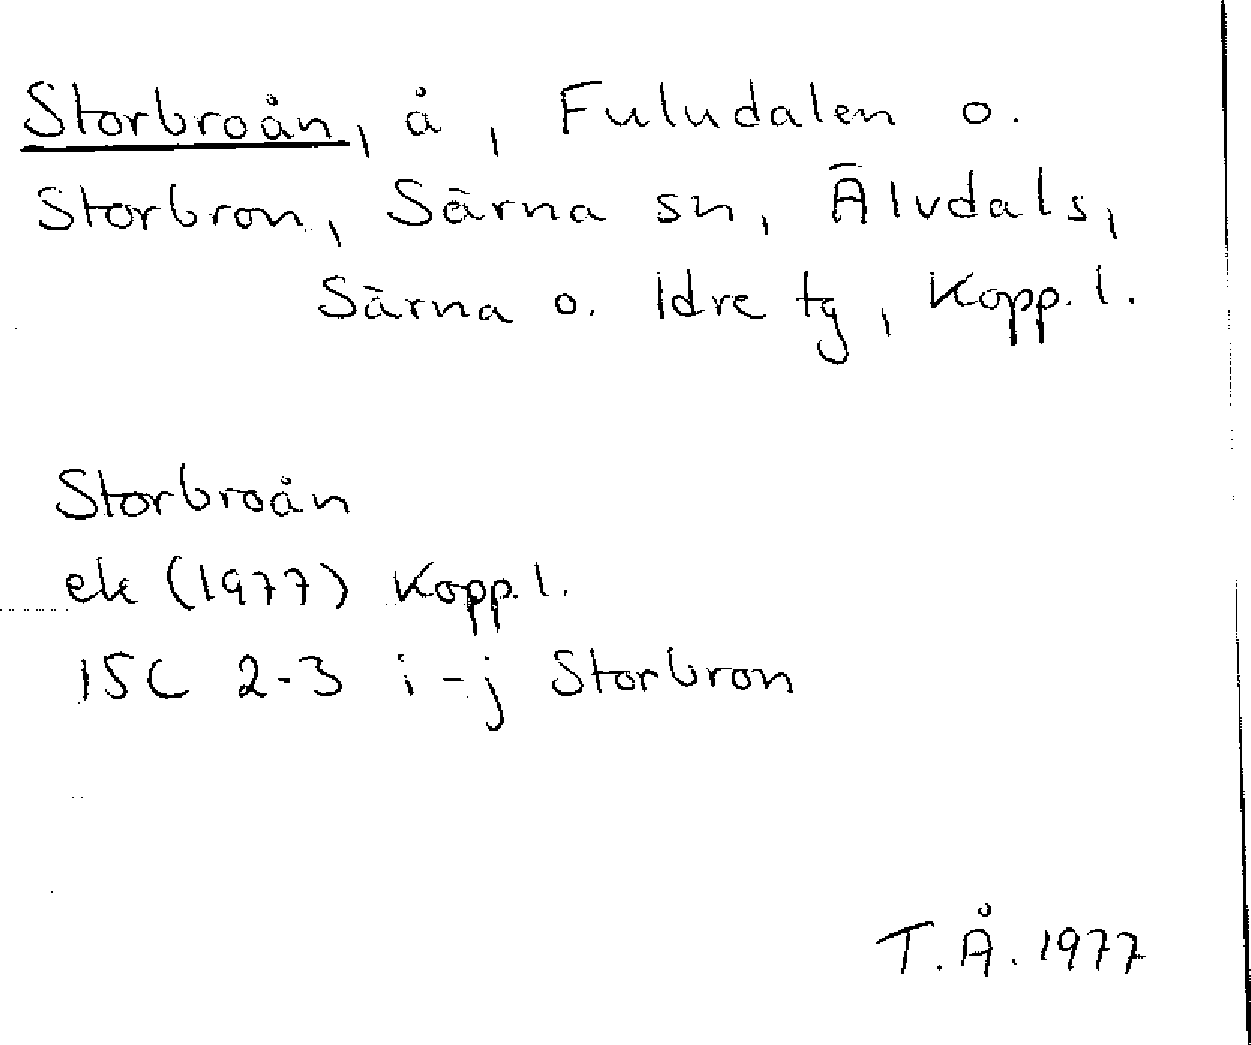 Storbroån, å, Fuludalen o.
Storbron, Särna sn, Älvdals,
Särna o. Idre tg, Kopp. l.
Storbroån
ek (1977) Kopp. l.
15C 2-3 i-j Storbron
T. Å. 1977